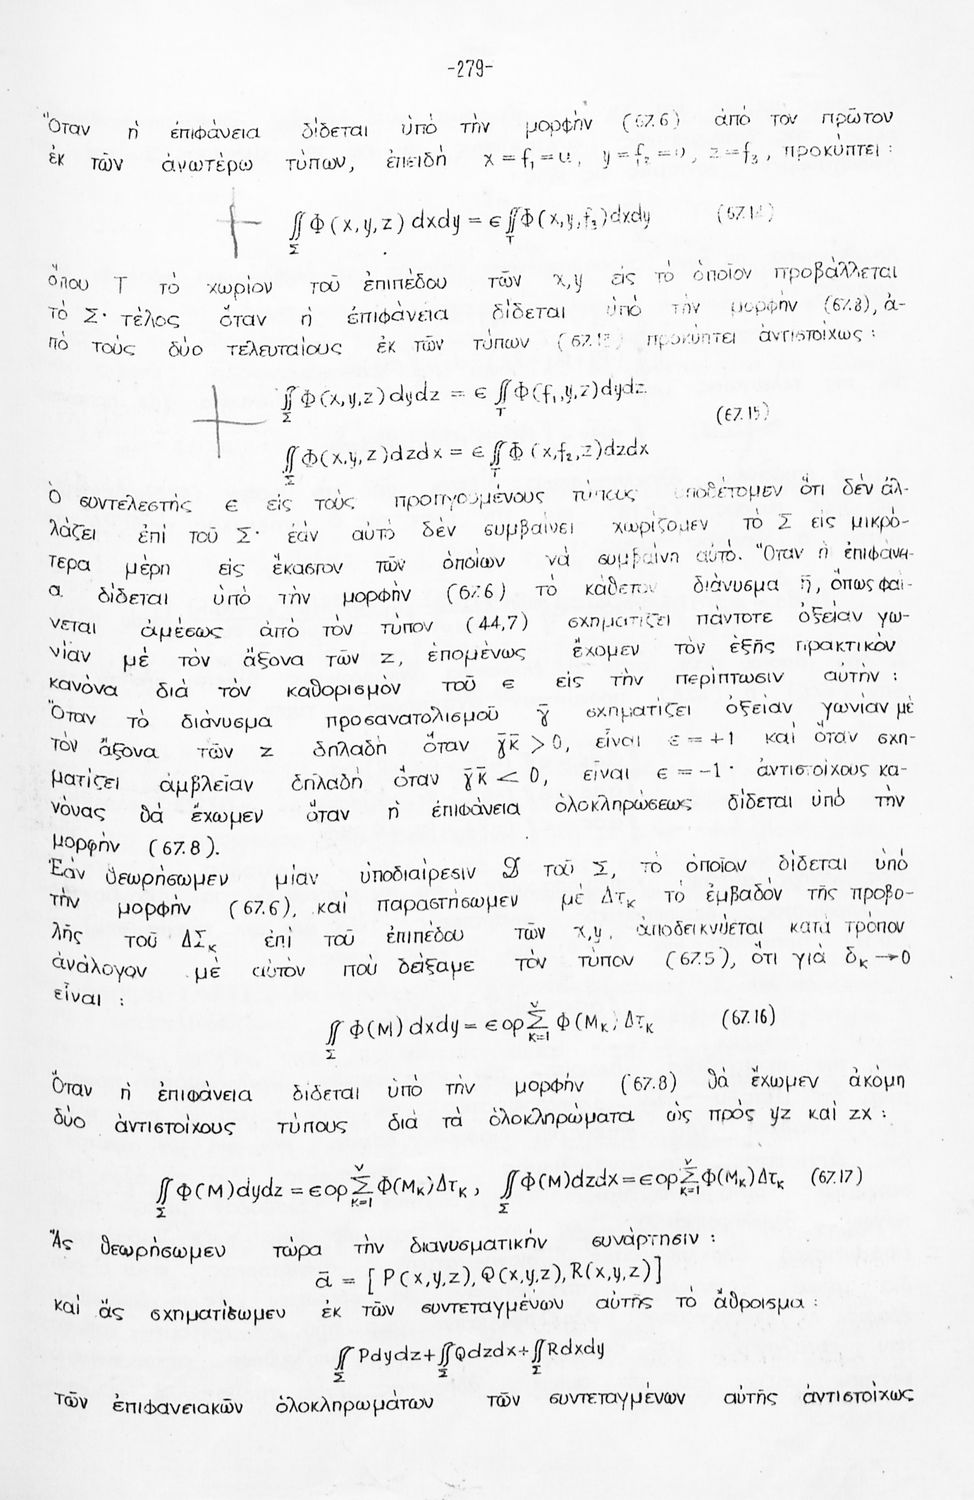 -279-
Ὅταν ἡ ἐπιφάνεια δίδεται ὑπό τὴν μορφὴν (67.6) ἀπό τον πρῶτον
ἐκ τῶν ἀνωτέρω τύπων, ἐπειδὴ x = f₁ = u, y = f₂ = υ, z = f₃, προκύπτει :
∬_Σ Φ(x,y,z) dxdy = ϵ ∬_T Φ(x,y,f₃)dxdy (67.14)
ὅπου T τὸ χωρίον τοῦ ἐπιπέδου τῶν x,y εἰς τὸ ὁποῖον προβάλλεται
τὸ Σ· τέλος ὅταν ἡ ἐπιφάνεια δίδεται ὑπό τὴν μορφὴν (67.8), ἀ-
πό τούς δύο τελευταίους ἐκ τῶν τύπων (67.13) προκύπτει ἀντιστοίχως :
∬_Σ Φ(x,y,z)dydz = ϵ ∬_T Φ(f₁,y,z)dydz
(67.15)
∬_Σ Φ(x,y,z)dzdx = ϵ ∬_T Φ(x,f₂,z)dzdx
Ὁ συντελεστής ϵ εἰς τούς προηγουμένους τύπους ὑποθέτομεν ὅτι δέν ἀλ-
λάζει ἐπί τοῦ Σ· ἐάν αὐτό δέν συμβαίνει χωρίζομεν τὸ Σ εἰς μικρό-
τερα μέρη εἰς ἕκαστον τῶν ὁποίων νά συμβαίνη αὐτό. Ὅταν ἡ ἐπιφάνει-
α δίδεται ὑπό τὴν μορφὴν (67.6) τὸ κάθετον διάνυσμα η̄, ὅπως φαί-
νεται ἀμέσως ἀπό τὸν τύπον (44,7) σχηματίζει πάντοτε ὀξεῖαν γω-
νίαν μέ τὸν ἄξονα τῶν z, ἐπομένως ἔχομεν τὸν ἑξῆς πρακτικόν
κανόνα διά τὸν καθορισμόν τοῦ ϵ εἰς τὴν περίπτωσιν αὐτήν :
Ὅταν τὸ διάνυσμα προσανατολισμοῦ γ̄ σχηματίζει ὀξεῖαν γωνίαν μέ
τὸν ἄξονα τῶν z δηλαδὴ ὅταν γ̄κ̄ > 0, εἶναι ϵ = +1 καί ὅταν σχη-
ματίζει ἀμβλεῖαν δηλαδὴ ὅταν γ̄κ̄ < 0, εἶναι ϵ = -1· ἀντιστοίχους κα-
νόνας θά ἔχωμεν ὅταν ἡ ἐπιφάνεια ὁλοκληρώσεως δίδεται ὑπό τὴν
μορφὴν (67.8).
Ἐάν θεωρήσωμεν μίαν ὑποδιαίρεσιν 𝒟 τοῦ Σ, τὸ ὁποῖον δίδεται ὑπό
τὴν μορφὴν (67.6), καί παραστήσωμεν μέ Δτ_κ τὸ ἐμβαδόν τῆς προβο-
λῆς τοῦ ΔΣ_κ ἐπί τοῦ ἐπιπέδου τῶν x,y, ἀποδεικνύεται κατά τρόπον
ἀνάλογον μέ αὐτόν πού δείξαμε τὸν τύπον (67.5), ὅτι γιά δ_κ → 0
εἶναι :
∬_Σ Φ(M) dxdy = ϵ ορ Σ_{κ=1}^ν Φ(M_κ) Δτ_κ (67.16)
Ὅταν ἡ ἐπιφάνεια δίδεται ὑπό τὴν μορφὴν (67.8) θά ἔχωμεν ἀκόμη
δύο ἀντιστοίχους τύπους διά τά ὁλοκληρώματα ὡς πρός yz καί zx :
∬_Σ Φ(M)dydz = ϵ ορ Σ_{κ=1}^ν Φ(M_κ)Δτ_κ , ∬_Σ Φ(M)dzdx = ϵ ορ Σ_{κ=1}^ν Φ(M_κ)Δτ_κ (67.17)
Ἄς θεωρήσωμεν τώρα τὴν διανυσματικὴν συνάρτησιν :
ᾱ = [ P(x,y,z), Q(x,y,z), R(x,y,z) ]
καί ἄς σχηματίσωμεν ἐκ τῶν συντεταγμένων αὐτῆς τὸ ἄθροισμα :
∬_Σ Pdydz + ∬_Σ Qdzdx + ∬_Σ Rdxdy
τῶν ἐπιφανειακῶν ὁλοκληρωμάτων τῶν συντεταγμένων αὐτῆς ἀντιστοίχως